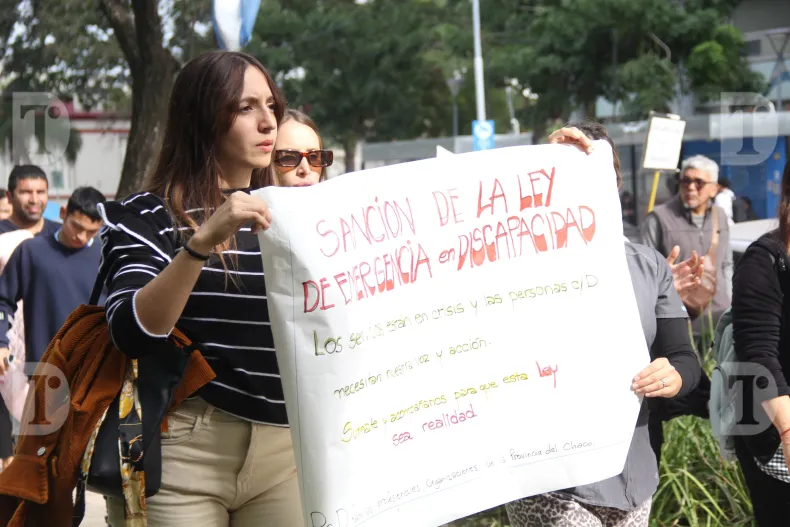 SANCIÓN DE LA LEY
DE EMERGENCIA en DISCAPACIDAD
Los están en crisis y las personas c/D
necesitan nuestra voz y acción.
Sumate y acompañanos para que esta Ley
sea realidad
Organizaciones de la Provincia del Chaco